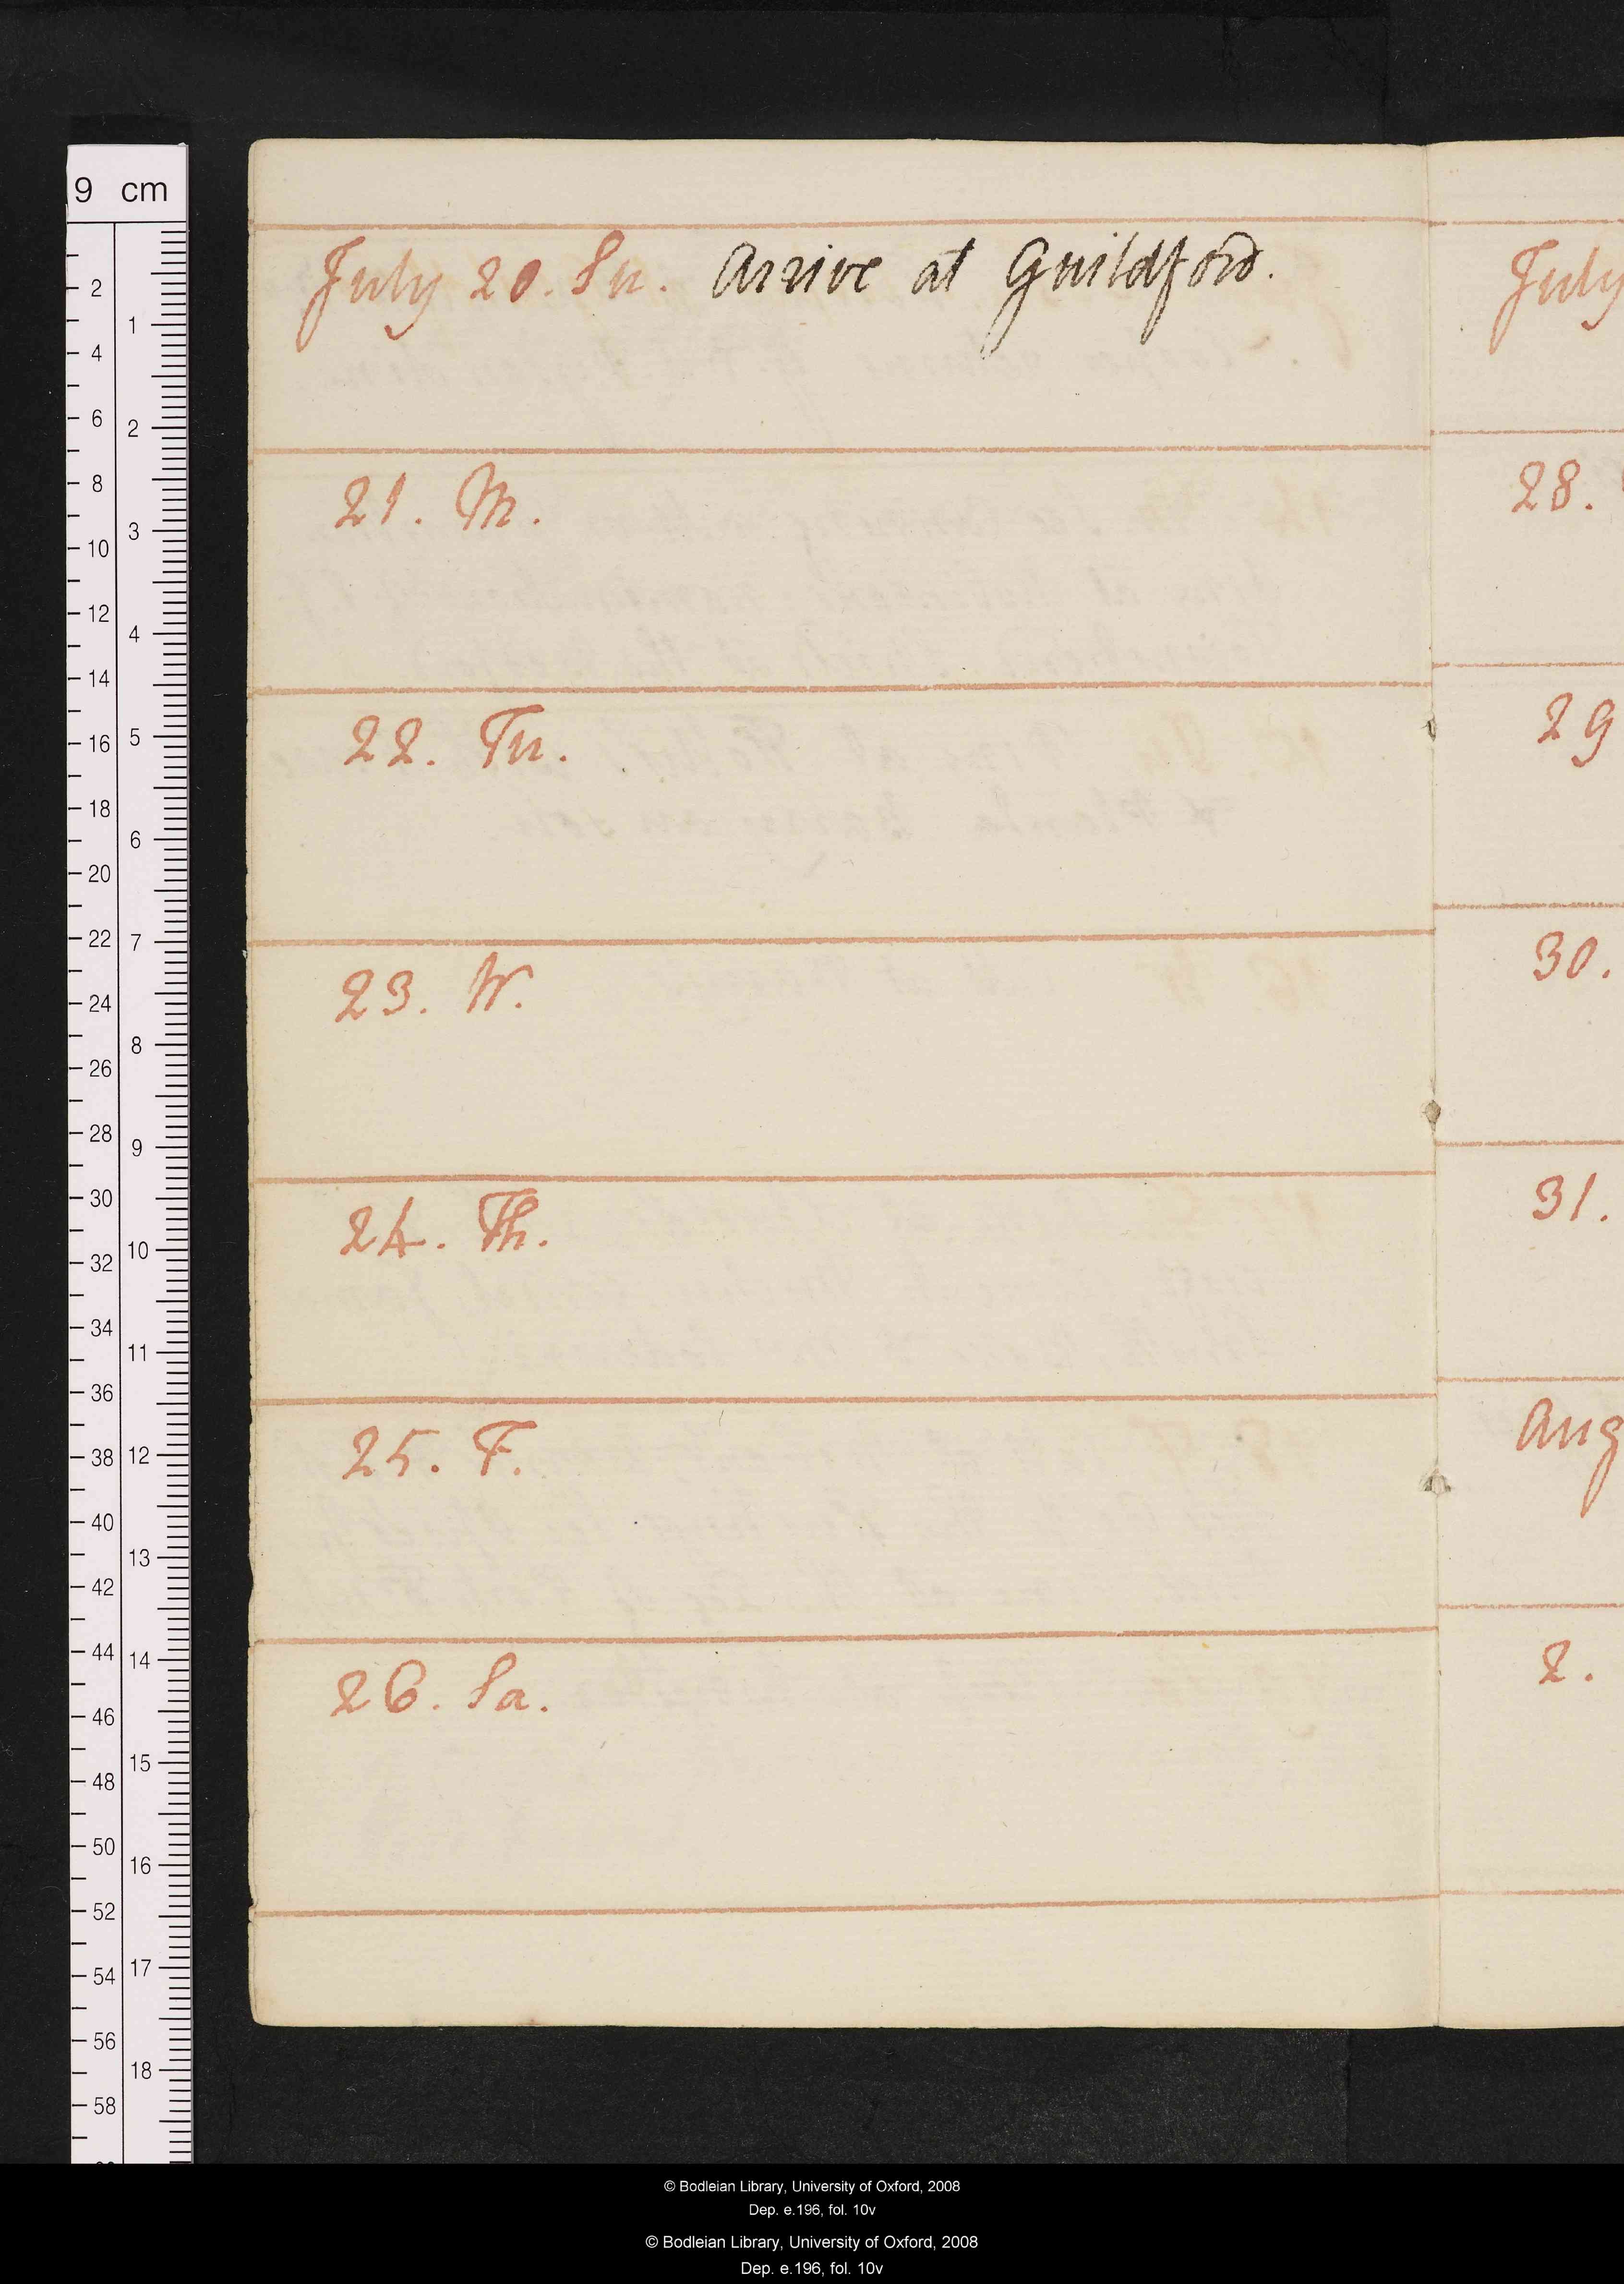 July 20. Su. Arrive at Guildford.
21. M.
22. Tu.
23. W.
24. Th.
25. F.
26. Sa.
July
28.
29
30.
31.
Aug
2.
9 cm
2
4
6
8
10
12
14
16
18
20
22
24
26
28
30
32
34
36
38
40
42
44
46
48
50
52
54
56
58
1
2
3
4
5
6
7
8
9
10
11
12
13
14
15
16
17
18
© Bodleian Library, University of Oxford, 2008
Dep. e.196, fol. 10v
© Bodleian Library, University of Oxford, 2008
Dep. e.196, fol. 10v